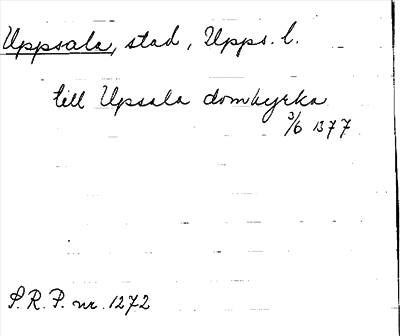 Uppsala, stad, Upps. l.
till Upsala domkyrka
3/6 1377
S.R.P. nr. 1272